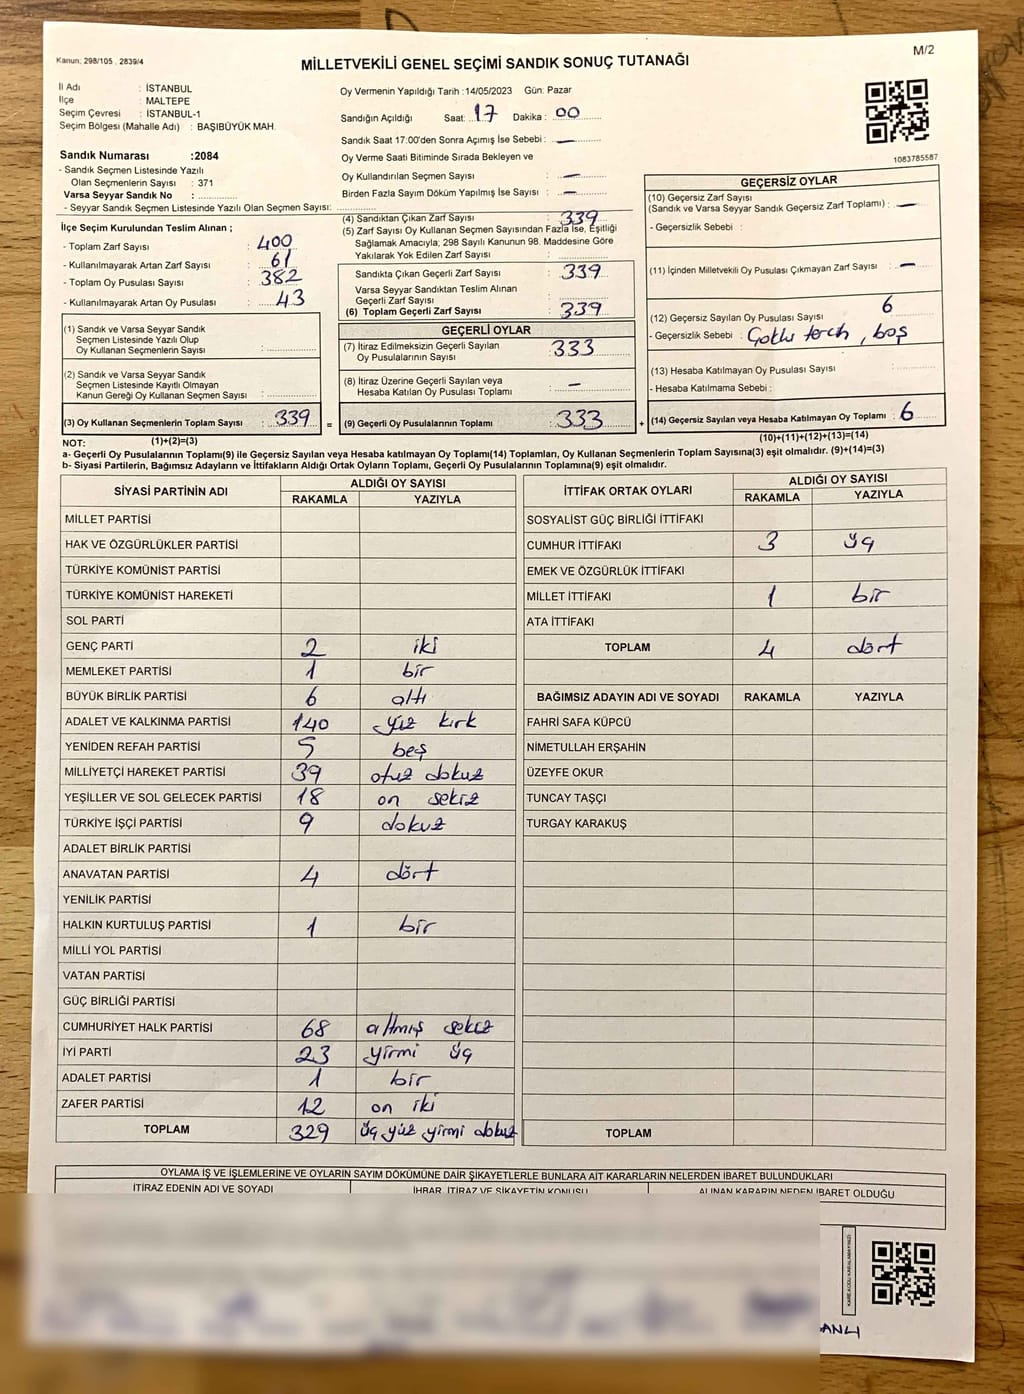 Kanun: 298/105 , 2839/4
MİLLETVEKİLİ GENEL SEÇİMİ SANDIK SONUÇ TUTANAĞI
M/2
İl Adı : İSTANBUL
İlçe : MALTEPE
Seçim Çevresi : İSTANBUL-1
Seçim Bölgesi (Mahalle Adı) : BAŞIBÜYÜK MAH.
Sandık Numarası :2084
- Sandık Seçmen Listesinde Yazılı
Olan Seçmenlerin Sayısı : 371
Varsa Seyyar Sandık No :
- Seyyar Sandık Seçmen Listesinde Yazılı Olan Seçmen Sayısı:
Oy Vermenin Yapıldığı Tarih :14/05/2023 Gün: Pazar
Sandığın Açıldığı Saat: 17 Dakika : 00
Sandık Saat 17:00'den Sonra Açımış İse Sebebi : —
Oy Verme Saati Bitiminde Sırada Bekleyen ve
Oy Kullandırılan Seçmen Sayısı : —
Birden Fazla Sayım Döküm Yapılmış İse Sayısı : —
1083785587
İlçe Seçim Kurulundan Teslim Alınan ;
- Toplam Zarf Sayısı : 400
- Kullanılmayarak Artan Zarf Sayısı : 61
- Toplam Oy Pusulası Sayısı : 382
- Kullanılmayarak Artan Oy Pusulası : 43
(1) Sandık ve Varsa Seyyar Sandık
Seçmen Listesinde Yazılı Olup
Oy Kullanan Seçmenlerin Sayısı :
(2) Sandık ve Varsa Seyyar Sandık
Seçmen Listesinde Kayıtlı Olmayan
Kanun Gereği Oy Kullanan Seçmen Sayısı :
(3) Oy Kullanan Seçmenlerin Toplam Sayısı : 339 =
(4) Sandıktan Çıkan Zarf Sayısı : 339
(5) Zarf Sayısı Oy Kullanan Seçmen Sayısından Fazla İse, Eşitliği
Sağlamak Amacıyla; 298 Sayılı Kanunun 98. Maddesine Göre
Yakılarak Yok Edilen Zarf Sayısı :
Sandıkta Çıkan Geçerli Zarf Sayısı : 339
Varsa Seyyar Sandıktan Teslim Alınan
Geçerli Zarf Sayısı :
(6) Toplam Geçerli Zarf Sayısı : 339
GEÇERLİ OYLAR
(7) İtiraz Edilmeksizin Geçerli Sayılan
Oy Pusulalarının Sayısı : 333
(8) İtiraz Üzerine Geçerli Sayılan veya
Hesaba Katılan Oy Pusulası Toplamı : —
(9) Geçerli Oy Pusulalarının Toplamı : 333 +
GEÇERSİZ OYLAR
(10) Geçersiz Zarf Sayısı
(Sandık ve Varsa Seyyar Sandık Geçersiz Zarf Toplamı) : —
- Geçersizlik Sebebi :
(11) İçinden Milletvekili Oy Pusulası Çıkmayan Zarf Sayısı : —
(12) Geçersiz Sayılan Oy Pusulası Sayısı : 6
- Geçersizlik Sebebi : Çoklu terch , boş
(13) Hesaba Katılmayan Oy Pusulası Sayısı :
- Hesaba Katılmama Sebebi :
(14) Geçersiz Sayılan veya Hesaba Katılmayan Oy Toplamı : 6
NOT: (1)+(2)=(3) (10)+(11)+(12)+(13)=(14)
a- Geçerli Oy Pusulalarının Toplamı(9) ile Geçersiz Sayılan veya Hesaba katılmayan Oy Toplamı(14) Toplamları, Oy Kullanan Seçmenlerin Toplam Sayısına(3) eşit olmalıdır. (9)+(14)=(3)
b- Siyasi Partilerin, Bağımsız Adayların ve İttifakların Aldığı Ortak Oyların Toplamı, Geçerli Oy Pusulalarının Toplamına(9) eşit olmalıdır.
SİYASİ PARTİNİN ADI ALDIĞI OY SAYISI
RAKAMLA YAZIYLA
MİLLET PARTİSİ
HAK VE ÖZGÜRLÜKLER PARTİSİ
TÜRKİYE KOMÜNİST PARTİSİ
TÜRKİYE KOMÜNİST HAREKETİ
SOL PARTİ
GENÇ PARTİ 2 iki
MEMLEKET PARTİSİ 1 bir
BÜYÜK BİRLİK PARTİSİ 6 altı
ADALET VE KALKINMA PARTİSİ 140 yüz kırk
YENİDEN REFAH PARTİSİ 5 beş
MİLLİYETÇİ HAREKET PARTİSİ 39 otuz dokuz
YEŞİLLER VE SOL GELECEK PARTİSİ 18 on sekiz
TÜRKİYE İŞÇİ PARTİSİ 9 dokuz
ADALET BİRLİK PARTİSİ
ANAVATAN PARTİSİ 4 dört
YENİLİK PARTİSİ
HALKIN KURTULUŞ PARTİSİ 1 bir
MİLLİ YOL PARTİSİ
VATAN PARTİSİ
GÜÇ BİRLİĞİ PARTİSİ
CUMHURİYET HALK PARTİSİ 68 altmış sekiz
İYİ PARTİ 23 yirmi üç
ADALET PARTİSİ 1 bir
ZAFER PARTİSİ 12 on iki
TOPLAM 329 üç yüz yirmi dokuz
İTTİFAK ORTAK OYLARI ALDIĞI OY SAYISI
RAKAMLA YAZIYLA
SOSYALİST GÜÇ BİRLİĞİ İTTİFAKI
CUMHUR İTTİFAKI 3 üç
EMEK VE ÖZGÜRLÜK İTTİFAKI
MİLLET İTTİFAKI 1 bir
ATA İTTİFAKI
TOPLAM 4 dört
BAĞIMSIZ ADAYIN ADI VE SOYADI RAKAMLA YAZIYLA
FAHRİ SAFA KÜPCÜ
NİMETULLAH ERŞAHİN
ÜZEYFE OKUR
TUNCAY TAŞÇI
TURGAY KARAKUŞ
TOPLAM
OYLAMA İŞ VE İŞLEMLERİNE VE OYLARIN SAYIM DÖKÜMÜNE DAİR ŞİKAYETLERLE BUNLARA AİT KARARLARIN NELERDEN İBARET BULUNDUKLARI
İTİRAZ EDENİN ADI VE SOYADI İHBAR, İTİRAZ VE ŞİKAYETİN KONUSU ALINAN KARARIN NEDEN İBARET OLDUĞU
KARE KODU KARALAMAYINIZ!
ANLI